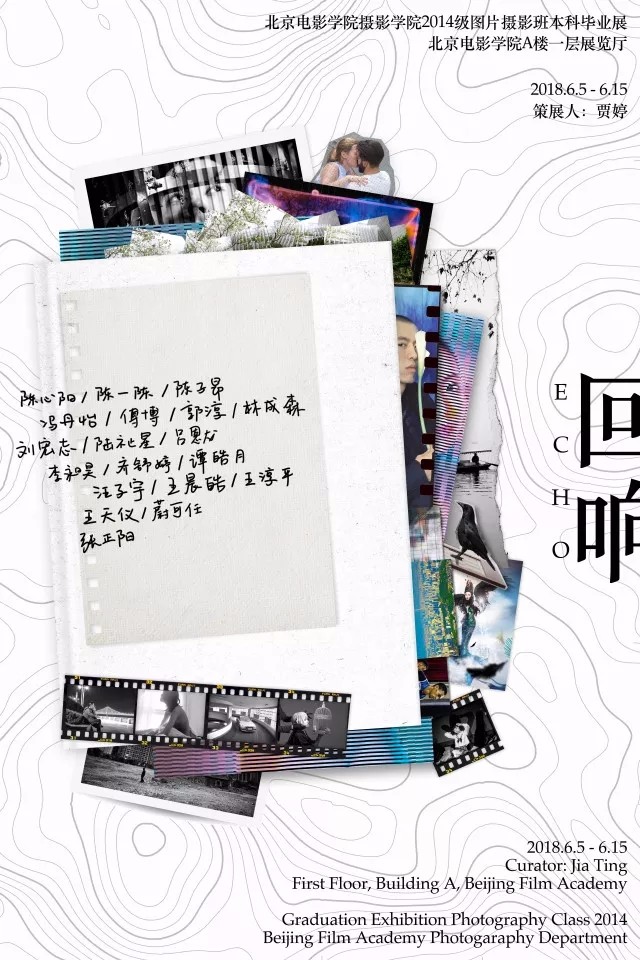 北京电影学院摄影学院2014级图片摄影班本科毕业展
北京电影学院A楼一层展览厅
2018.6.5 - 6.15
策展人：贾婷
陈心阳 / 陈一陈 / 陈子昂
冯丹怡 / 傅博 / 郭淳 / 林成森
刘宏志 / 陆祉星 / 吕思龙
李昶昊 / 齐锦婷 / 谭皓月
汪子宇 / 王晨皓 / 王淳平
王天仪 / 蔚可任
张正阳
ECHO
回响
2018.6.5 - 6.15
Curator: Jia Ting
First Floor, Building A, Beijing Film Academy
Graduation Exhibition Photography Class 2014
Beijing Film Academy Photogaraphy Department